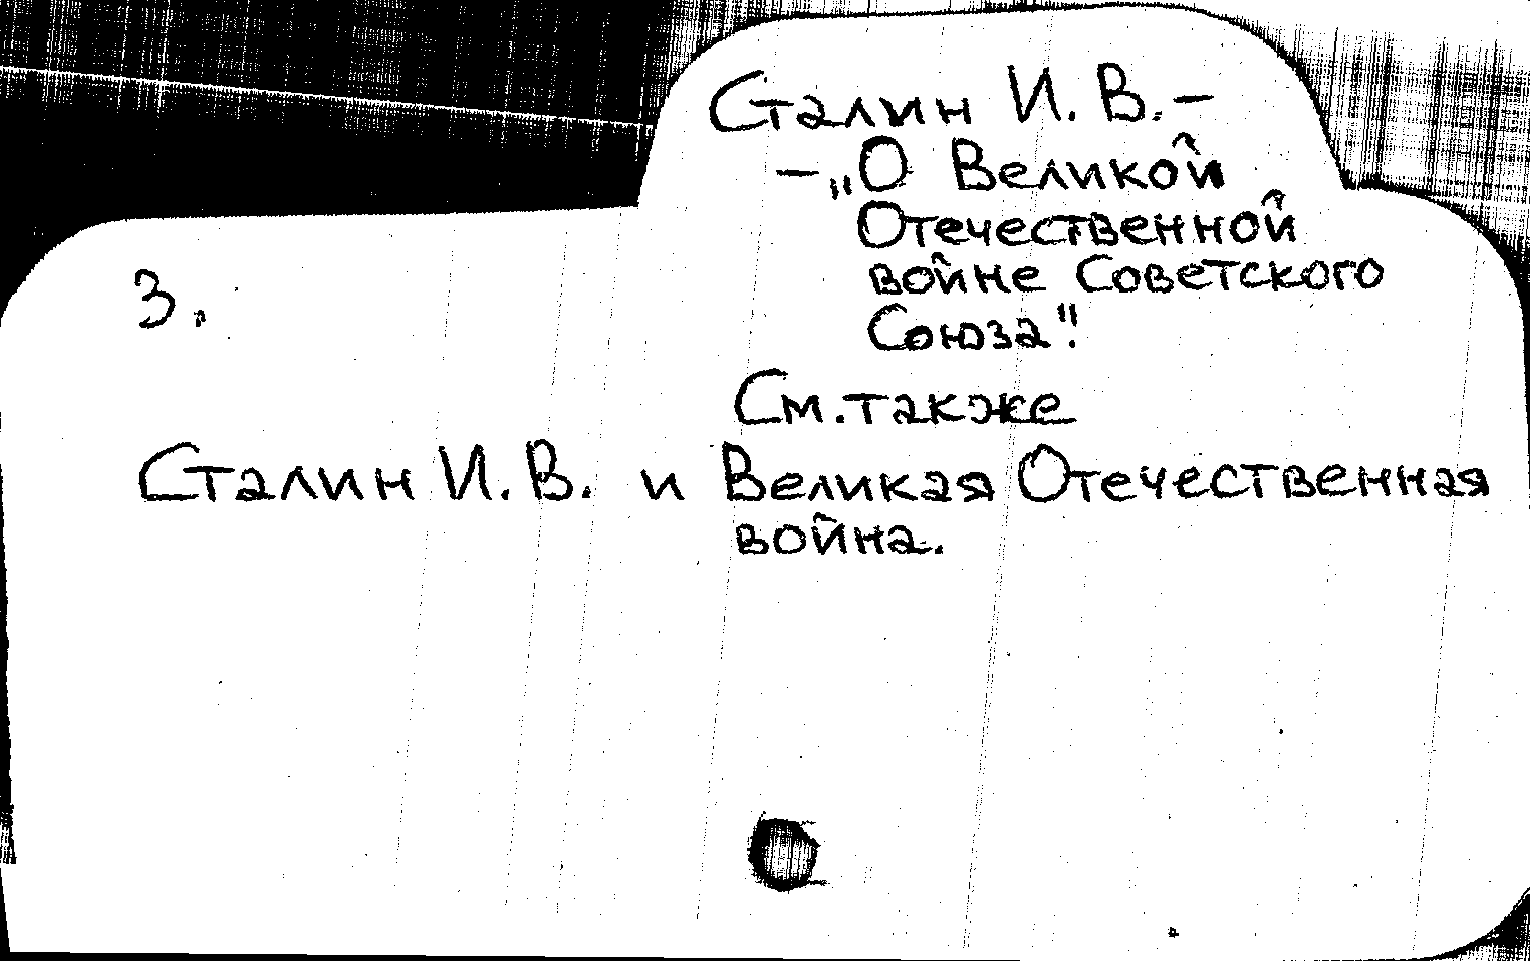 Сталин И. В. –
– „О Великой
Отечественной
войне Советского
Союза".
3.
См. также
Сталин И. В. и Великая Отечественная
война.